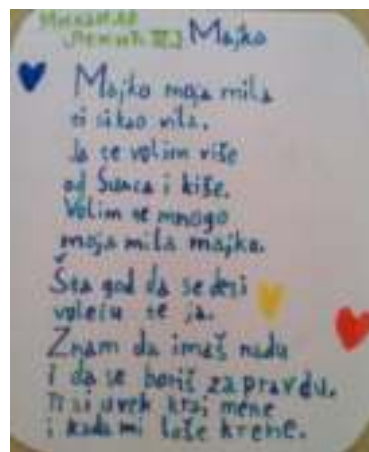 Михаило
Лекић III3 Majko
Majko moja mila
ti si kao vila.
Ja te volim više
od Sunca i kiše.
Volim te mnogo
moja mila majko.
Šta god da se desi
voleću te ja.
Znam da imaš nadu
i da se boriš za pravdu.
Ti si uvek kraj mene
i kada mi loše krene.